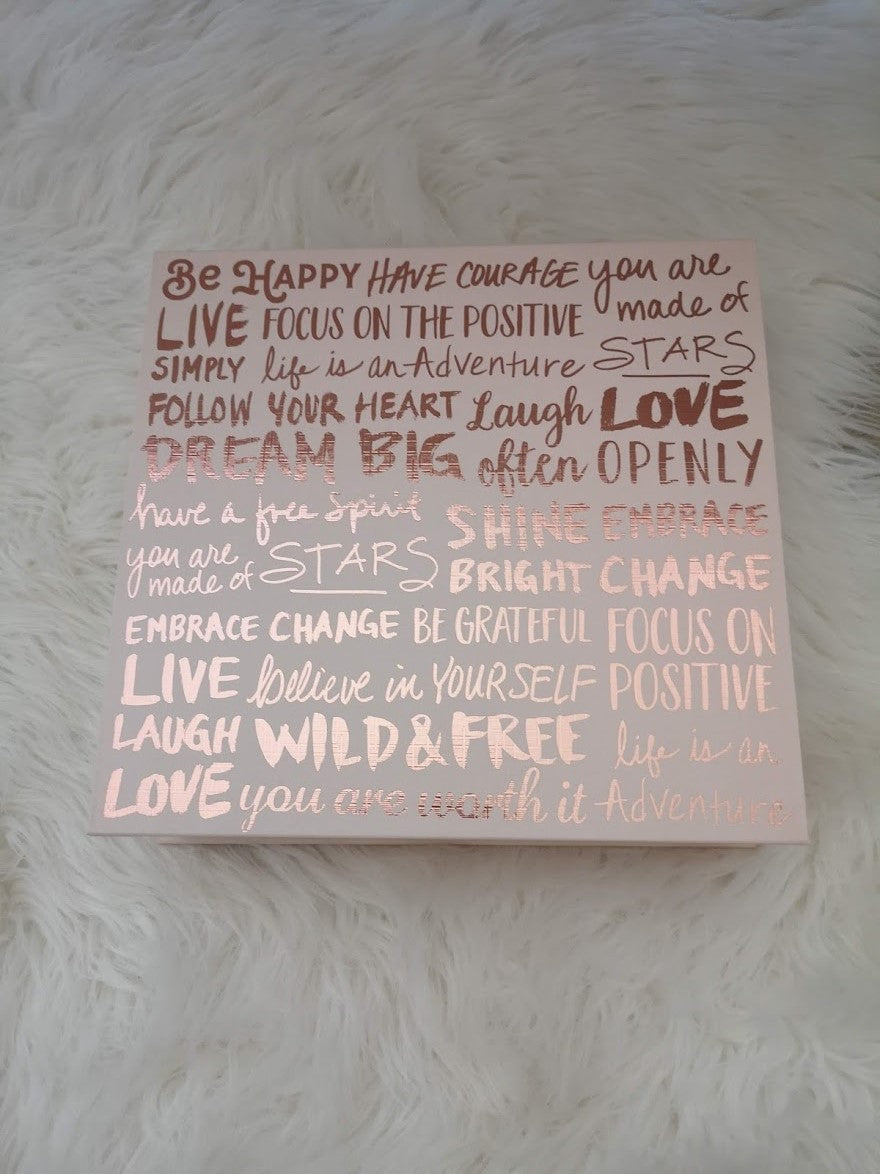 Be HAPPY HAVE COURAGE you are
LIVE FOCUS ON THE POSITIVE made of
SIMPLY life is an Adventure STARS
FOLLOW YOUR HEART Laugh LOVE
DREAM BIG often OPENLY
have a free spirit SHINE EMBRACE
you are
made of STARS BRIGHT CHANGE
EMBRACE CHANGE BE GRATEFUL FOCUS ON
LIVE believe in YOURSELF POSITIVE
LAUGH WILD & FREE life is an
LOVE you are worth it Adventure